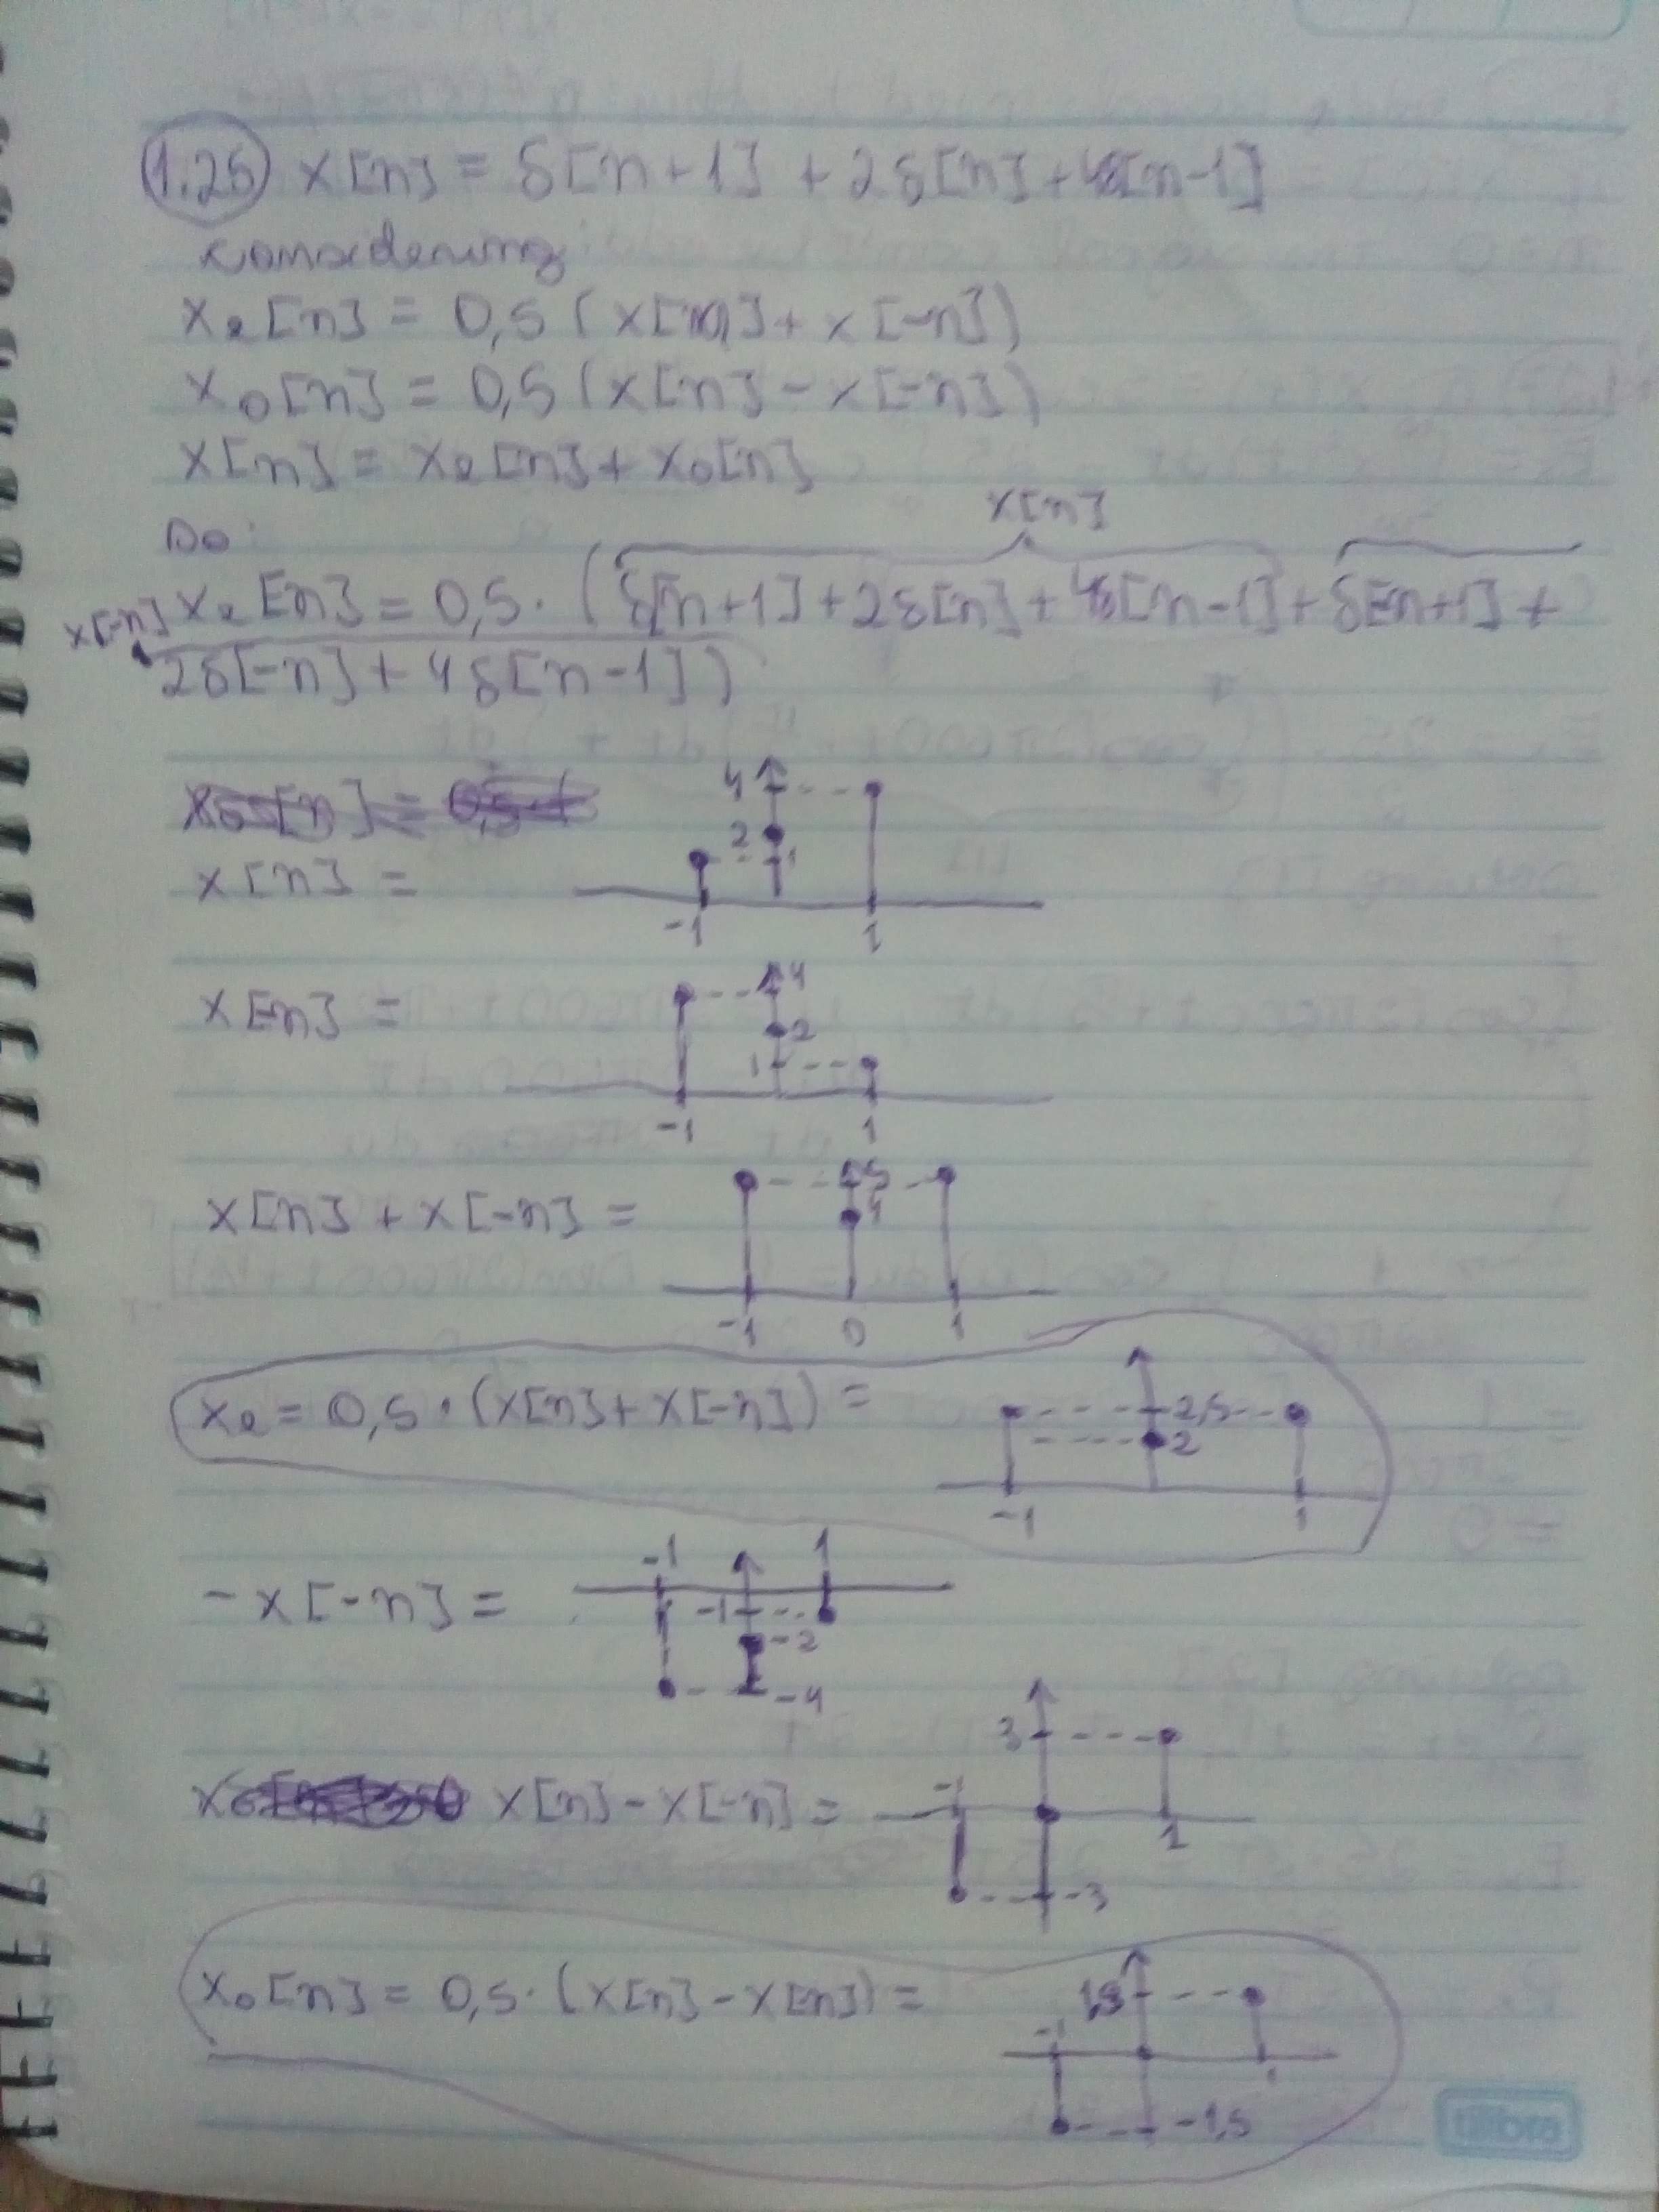 1.25 x[n] = δ[n+1] + 2δ[n] + 4δ[n-1]
considering
xe[n] = 0,5 (x[n] + x[-n])
xo[n] = 0,5 (x[n] - x[-n])
x[n] = xe[n] + xo[n]
x[n]
So:
xe[n] = 0,5 · (δ[n+1] + 2δ[n] + 4δ[n-1] + δ[-n+1] +
x[-n]
2δ[-n] + 4δ[n-1])
4
2
1
x[n] =
-1 1
4
x[-n] =
2
1
-1 1
5
x[n] + x[-n] =
4
-1 0 1
xe = 0,5 · (x[n] + x[-n]) =
2,5
2
-1 1
-1 1
-x[-n] =
-1
-2
-4
3
-1
x[n] - x[-n] =
1
-3
xo[n] = 0,5 · (x[n] - x[n]) =
1,5
-1
1
-1,5
tilibra